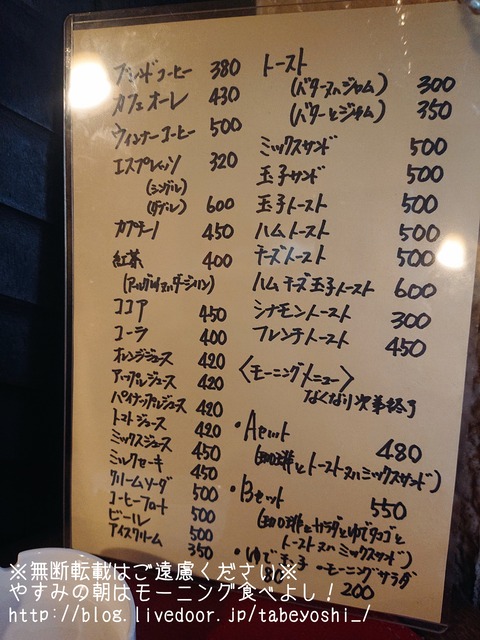 ブレンドコーヒー 380
カフェオーレ 430
ウィンナーコーヒー 500
エスプレッソ 320
(シングル)
(ダブル) 600
カプチーノ 450
紅茶 400
(アールグレイ又ハダージリン)
ココア 450
コーラ 400
オレンジジュース 420
アップルジュース 420
パイナップルジュース 420
トマトジュース 420
ミックスジュース 450
ミルクセーキ 450
クリームソーダ 500
コーヒーフロート 500
ビール 500
アイスクリーム 350
トースト
(バター又ハジャム) 300
(バターとジャム) 350
ミックスサンド 500
玉子サンド 500
玉子トースト 500
ハムトースト 500
チーズトースト 500
ハムチーズ玉子トースト 600
シナモントースト 300
フレンチトースト 450
〈モーニングメニュー〉
なくなり次第終了
・Aセット 480
(珈琲とトースト又ハミックスサンド)
・Bセット 550
(珈琲とサラダとゆでタマゴと
トースト又ハミックスサンド)
・ゆで玉子 ・モーニングサラダ
200
※無断転載はご遠慮ください※
やすみの朝はモーニング食べよし!
http://blog.livedoor.jp/tabeyoshi_/